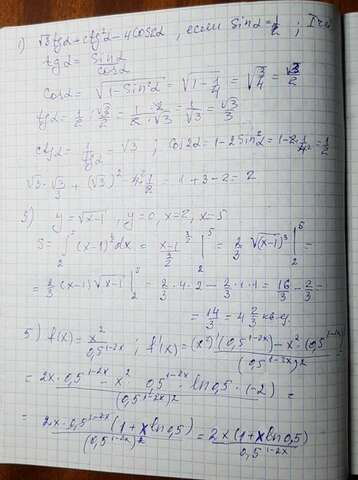 1) √3 tgα + ctg²α - 4cos2α, если sinα = 1/2; I чет
tgα = sinα/cosα
cosα = √(1-sin²α) = √(1-1/4) = √(3/4) = √3/2
tgα = 1/2 : √3/2 = 1·2/(2·√3) = 1/√3 = √3/3
ctgα = 1/tgα = √3; cos2α = 1-2sin²α = 1-2·1/4 = 1/2
√3·√3/3 + (√3)² - 4·1/2 = 1+3-2 = 2
3) y = √(x-1), y=0, x=2, x=5
S = ∫₂⁵ (x-1)^(1/2) dx = (x-1)^(3/2)/(3/2) |₂⁵ = 2/3 √(x-1)³ |₂⁵ =
= 2/3 (x-1)√(x-1) |₂⁵ = 2/3·4·2 - 2/3·1·1 = 16/3 - 2/3 =
= 14/3 = 4 2/3 кв.ед.
5) f(x) = x²/0,5^(1-2x); f'(x) = ((x²)'(0,5^(1-2x)) - x²·(0,5^(1-2x))')/(0,5^(1-2x))²
= (2x·0,5^(1-2x) - x²·0,5^(1-2x)·ln0,5·(-2))/(0,5^(1-2x))² =
= 2x·0,5^(1-2x)(1+xln0,5)/(0,5^(1-2x))² = 2x(1+xln0,5)/0,5^(1-2x)